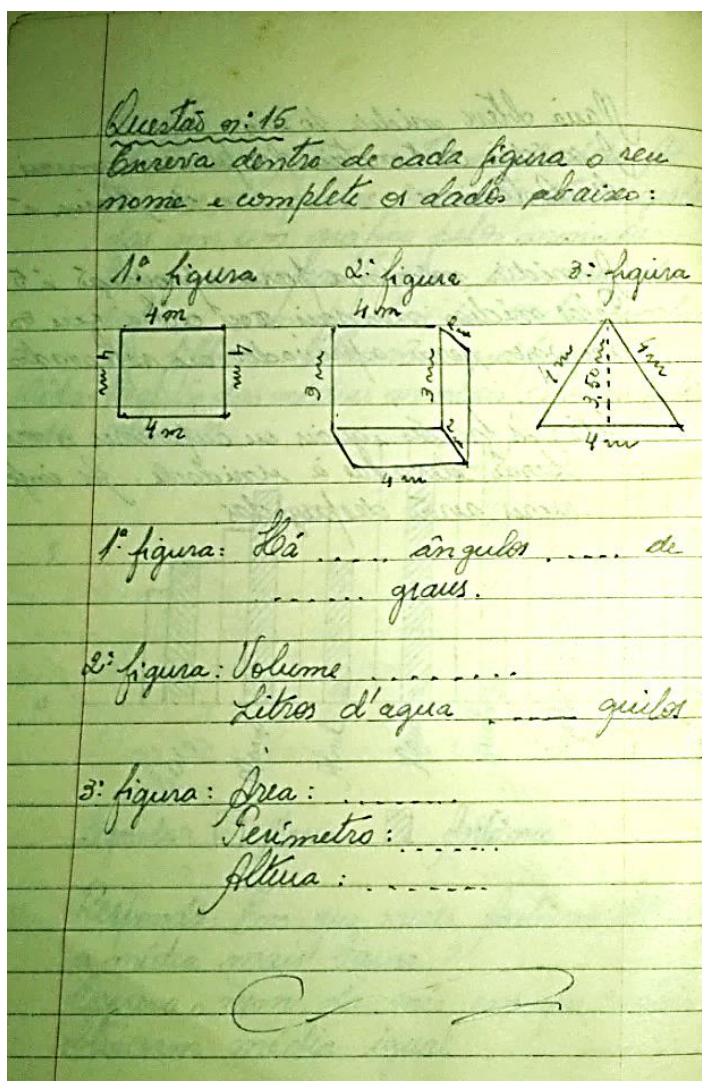 Questão nº: 15
Escreva dentro de cada figura o seu
nome e complete os dados abaixo:
1ª figura 2ª figura 3ª figura
4m 4m 4m 4m
4m 3m 3m 2m 2m 4m
4m 4m 3,50m 4m
1ª figura: Há ..... ângulos ..... de
....... graus.
2ª figura: Volume ........
Litros d'agua ...... quilos
3ª figura: Área: ........
Perímetro: .......
Altura: ........